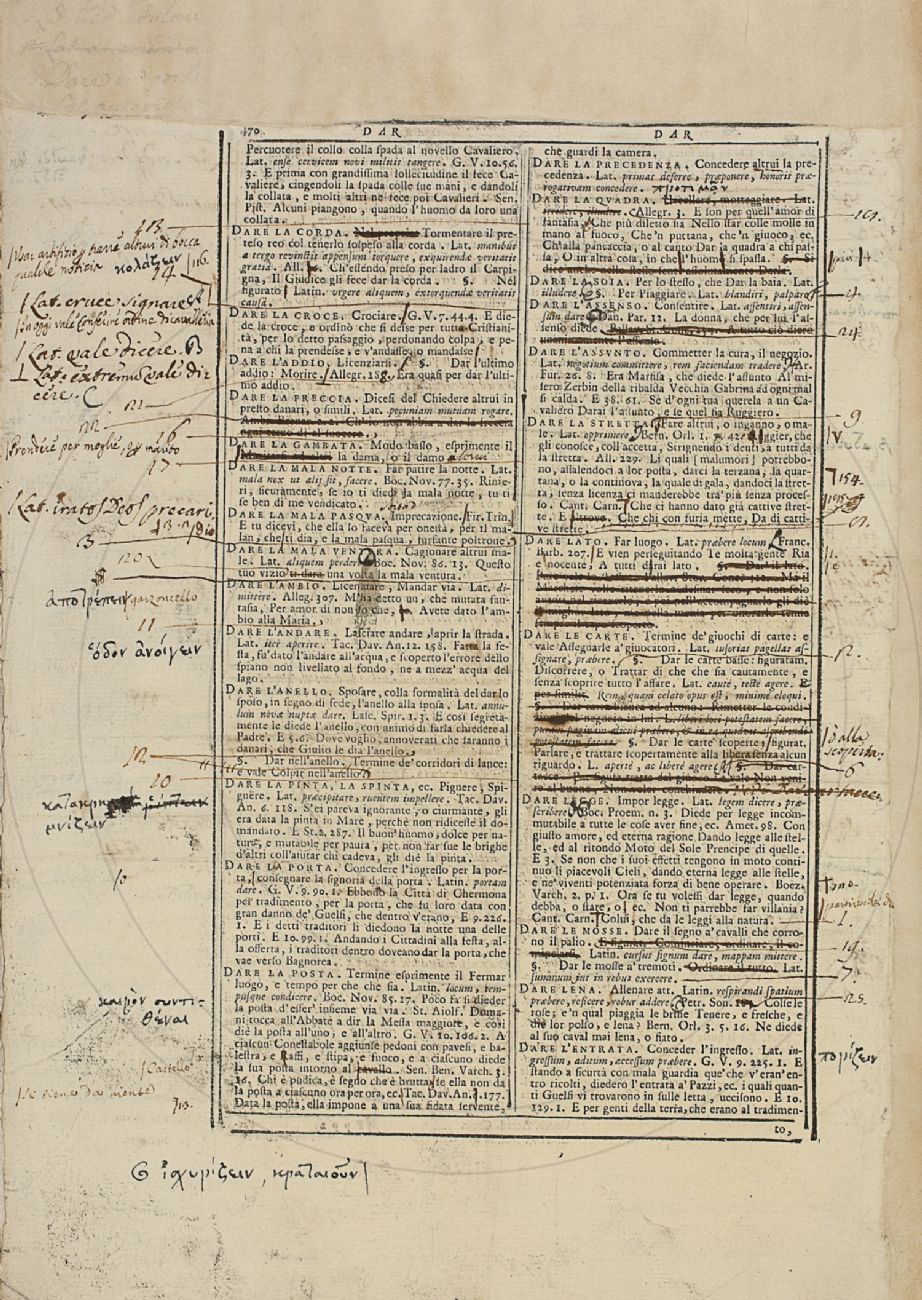 470 DAR DAR
Percuotere il collo colla spada al novello Cavaliero.
Lat. ense cervicem novi militis tangere. G. V. 10. 56.
3. E prima con grandissima sollecitudine il fece Ca-
valiere, cingendoli la spada colle sue mani, e dandoli
la collata, e molti altri ne fece poi Cavalieri. Sen.
Pist. Alcuni piangono, quando l'huomo da loro una
collata.
DARE LA CORDA. Tormentare il pre-
teso reo col tenerlo sospeso alla corda. Lat. manibus
a tergo revinctis appensum torquere, exquirendæ veritatis
gratia. All. Ch'essendo preso per ladro il Carpi-
gna, Il Giudice gli fece dar la corda. §. Nel
figurato Latin. urgere aliquem, extorquendæ veritatis
causa.
DARE LA CROCE. Crociare. G. V. 7. 44. 4. E die-
de la croce, e ordinò che si desse per tutta Cristiani-
tà, per lo detto passaggio, perdonando colpa, e pe-
na a chi la prendesse, e v'andasse, o mandasse
DARE L'ADDIO. Licenziarsi. §. Dar l'ultimo
addio: Morire. Allegr. Era quasi per dar l'ulti-
mo addio.
DARE LA FRECCIA. Dicesi del Chiedere altrui in
presto danari, o simili. Lat. pecuniam mutuam rogare.
DARE LA GAMBATA. Modo basso, esprimente il
la dama, o il damo
DARE LA MALA NOTTE. Far patire la notte. Lat.
mala nox ut alij sit, facere. Boc. Nov. 77. 35. Rinie-
ri, sicuramente, se io ti diedi la mala notte, tu ti
se ben di me vendicato.
DARE LA MALA PASQUA. Imprecazione. Fir. Trin.
E tu dicevi, che ella lo faceva per onestà, per il ma-
lan, che ti dia, e la mala pasqua, fursante poltrone.
DARE LA MALA VENTURA. Cagionare altrui ma-
le. Lat. aliquem perdere. Boc. Nov. 86. 13. Questo
tuo vizio ti darà una volta la mala ventura.
DARE L'AMBIO. Licenziare, Mandar via. Lat. di-
mittere. Alleg. 307. M'ha detto un, che mutata fan-
tasia, Per amor di non so che, Avete dato l'am-
bio alla Maria.
DARE L'ANDARE. Lasciare andare, aprir la strada.
Lat. iter aperire. Tac. Dav. An. 12. 158. Fatta la fe-
sta, fu dato l'andare all'acqua, e scoperto l'errore dello
spiano non livellato al fondo, ne a mezz' acqua del
lago.
DARE L'ANELLO. Sposare, colla formalità del dar lo
sposo, in segno di fede, l'anello alla sposa. Lat. annu-
lum novæ nuptæ dare. Lasc. Spir. 1. 3. E così segreta-
mente le diede l'anello, con animo di farla chiedere al
Padre. E 5. 6. Dove voglio, annoverati che saranno i
danari, che Giulio le dia l'anello.
§. Dar nell'anello. Termine de' corridori di lance:
e vale Colpir nell'anello.
DARE LA PINTA, LA SPINTA, ec. Pignere, Spi-
gnere. Lat. præcipitare, ruentem impellere. Tac. Dav.
An. 6. 118. S'ei pareva ignorante, o ciurmante, gli
era data la pinta in Mare, perchè non ridicesse il do-
mandato. E St. 2. 287. Il buon'huomo, dolce per na-
tura, e mutabile per paura, per non far sue le brighe
d'altri coll'aiutar chi cadeva, gli diè la pinta.
DARE LA PORTA. Concedere l'ingresso per la por-
ta, consegnare la signoria della porta. Latin. portam
dare. G. V. 9. 90. 1. Ebbono la Città di Ghermona
per tradimento, per la porta, che fu loro data con
gran danno de' Guelfi, che dentro v'erano, E 9. 226.
1. E i detti traditori li diedono la notte una delle
porti. E 10. 99. 1. Andando i Cittadini alla festa, al-
la offerta, i traditori dentro doveano dar la porta, che
vae verso Bagnorea.
DARE LA POSTA. Termine esprimente il Fermar
luogo, e tempo per che che sia. Latin. locum, tem-
pusque condicere. Boc. Nov. 85. 17. Poco fa si dieder
la posta d'esser' insieme via via. St. Aiolf. Doma-
ni tocca all'Abbate a dir la Messa maggiore, e così
diè la posta all'uno, e all'altro. G. V. 10. 106. 2. A
ciascun Conestabole aggiunse pedoni con pavesi, e ba-
lestra, e Raffi, e stipa, e fuoco, e a ciascuno diede
la sua posta intorno al cavallo. Sen. Ben. Varch. 3.
16. Chi è pudica, è segno che è brutta, se ella non da
la posta a ciascuno ora per ora, ec. Tac. Dav. An. 177.
Data la posta, ella impone a una sua fidata servente,
che guardi la camera.
DARE LA PRECEDENZA. Concedere altrui la pre-
cedenza. Lat. primas deferre, præponere, honoris præ-
rogativam concedere. προτιμᾶν
DARE LA QUADRA. Uccellare, motteggiare. Lat.
Allegr. 3. E son per quell'amor di
fantasia, Che più diletto ha Nello star colle molle in
mano al fuoco, Che'n puttana, che'n giuoco, ec.
Ch'alla pancaccia, o al canto Dar la quadra a chi pas-
sa, O in altra cosa, in che l'huomo si spassa. §. Si
dice anche nello stesso senso assolutamente Darla.
DARE LA SOIA. Per lo stesso, che Dar la baia. Lat.
illudere. §. Per Piaggiare. Lat. blandiri, palpare
DARE L'ASSENSO. Consentire. Lat. assentiri, assen-
sum dare. Dan. Par. 11. La donna, che per lui l'as-
senso diede.
DARE L'ASSUNTO. Commetter la cura, il negozio.
Lat. negotium committere, rem faciendam tradere. Ar.
Fur. 26. 8. Era Marfisa, che diede l'assunto Al mi-
sero Zerbin della ribalda Vecchia Gabrina ad ogni mal
sì calda. E 38. 61. Se d'ogni tua querela a un Ca-
valiero Darai l'assunto, e se quel sia Ruggiero.
DARE LA STRETTA. Fare altrui, o inganno, o ma-
le. Lat. opprimere. Bern. Orl. 1. Ruggier, che
gli conosce, coll'accetta, Strignendo i denti, a tutti da
la stretta. All. 229. Li quali [malumori] potrebbo-
no, assalendoci a lor posta, darci la terzana, la quar-
tana, o la continova, la quale di gala, dandoci la stret-
ta, senza licenza ci manderebbe tra' più senza proces-
so. Cant. Carn. Che ci hanno dato già cattive stret-
te. E Che chi con furia mette, Da di catti-
ve strette.
DARE LATO. Far luogo. Lat. præbere locum. Franc.
Barb. 207. E vien perseguitando Te molta gente Ria
e nocente, A tutti darai lato.
DARE LE CARTE. Termine de' giuochi di carte: e
vale Assegnarle a' giuocatori. Lat. lusorias pagellas as-
signare, præbere. §. Dar le carte basse: figuratam.
Discorrere, o Trattar di che che sia cautamente, e
senza scoprire tutto l'affare. Lat. cautè, tectè agere. E
per simile. Rem, quam celato opus est, minimè eloqui.
§. Dar carta bianca ad alcuno: Rimetter le condi-
negozio in lui. L. liberi
§. Dar le carte scoperte, figurat.
Parlare, e trattare scopertamente alla libera senza alcun
riguardo. L. apertè, ac liberè agere. §. Dar car-
DARE LEGGE. Impor legge. Lat. legem dicere, præ-
scribere. Boc. Proem. n. 3. Diede per legge incom-
mutabile a tutte le cose aver fine, ec. Amet. 98. Con
giusto amore, ed eterna ragione Dando legge alle stel-
le, ed al ritondo Moto del Sole Prencipe di quelle.
E 3. Se non che i suoi effetti tengono in moto conti-
nuo li piacevoli Cieli, dando eterna legge alle stelle,
e ne' viventi potenziata forza di bene operare. Boèz.
Varch. 2. p. 1. Ora se tu volessi dar legge, quando
debba, o stare, o ec. Non ti parrebbe far villania?
Cant. Carn. Colui, che da le leggi alla natura.
DARE LE MOSSE. Dare il segno a' cavalli che corro-
no il palio. E figurat. Cominciare, ordinare, il co-
minciarsi. Latin. cursus signum dare, mappam mittere.
§. Dar le mosse a' tremoti. Ordinare il tutto. Lat.
summum jus in rebus exercere.
DARE LENA. Allenare att. Latin. respirandi spatium
præbere, reficere, robur addere. Petr. Son. Colse le
rose; e'n qual piaggia le brine Tenere, e fresche, e
diè lor polso, e lena? Bern. Orl. 3. 5. 16. Ne diede
al suo caval mai lena, o fiato.
DARE L'ENTRATA. Conceder l'ingresso. Lat. in-
gressum, aditum, accessum præbere. G. V. 9. 225. 1. E
stando a sicurtà con mala guardia que' che v'eran'en-
tro ricolti, diedero l'entrata a' Pazzi, ec. i quali quan-
ti Guelfi vi trovarono in sulle letta, uccisono. E 10.
129. 1. E per genti della terra, che erano al tradimen-
to,
κολάζειν
Lat. cruce signare
Lat. vale dicere. B
Lat. extremus vale di-
cere. C
Prendere per moglie, o marito
Lat. iratos Deos precari
ἀποτρέπειν garzoncello
11
ὁδὸν ἀνοίγειν
20
καιρὸν συντι-
θέναι
Castello
13.
9
154.
o alla
scoperta.
6
1.
19.
7.
25.
πορίζειν
G ἰσχυρίζειν, κραταιοῦν